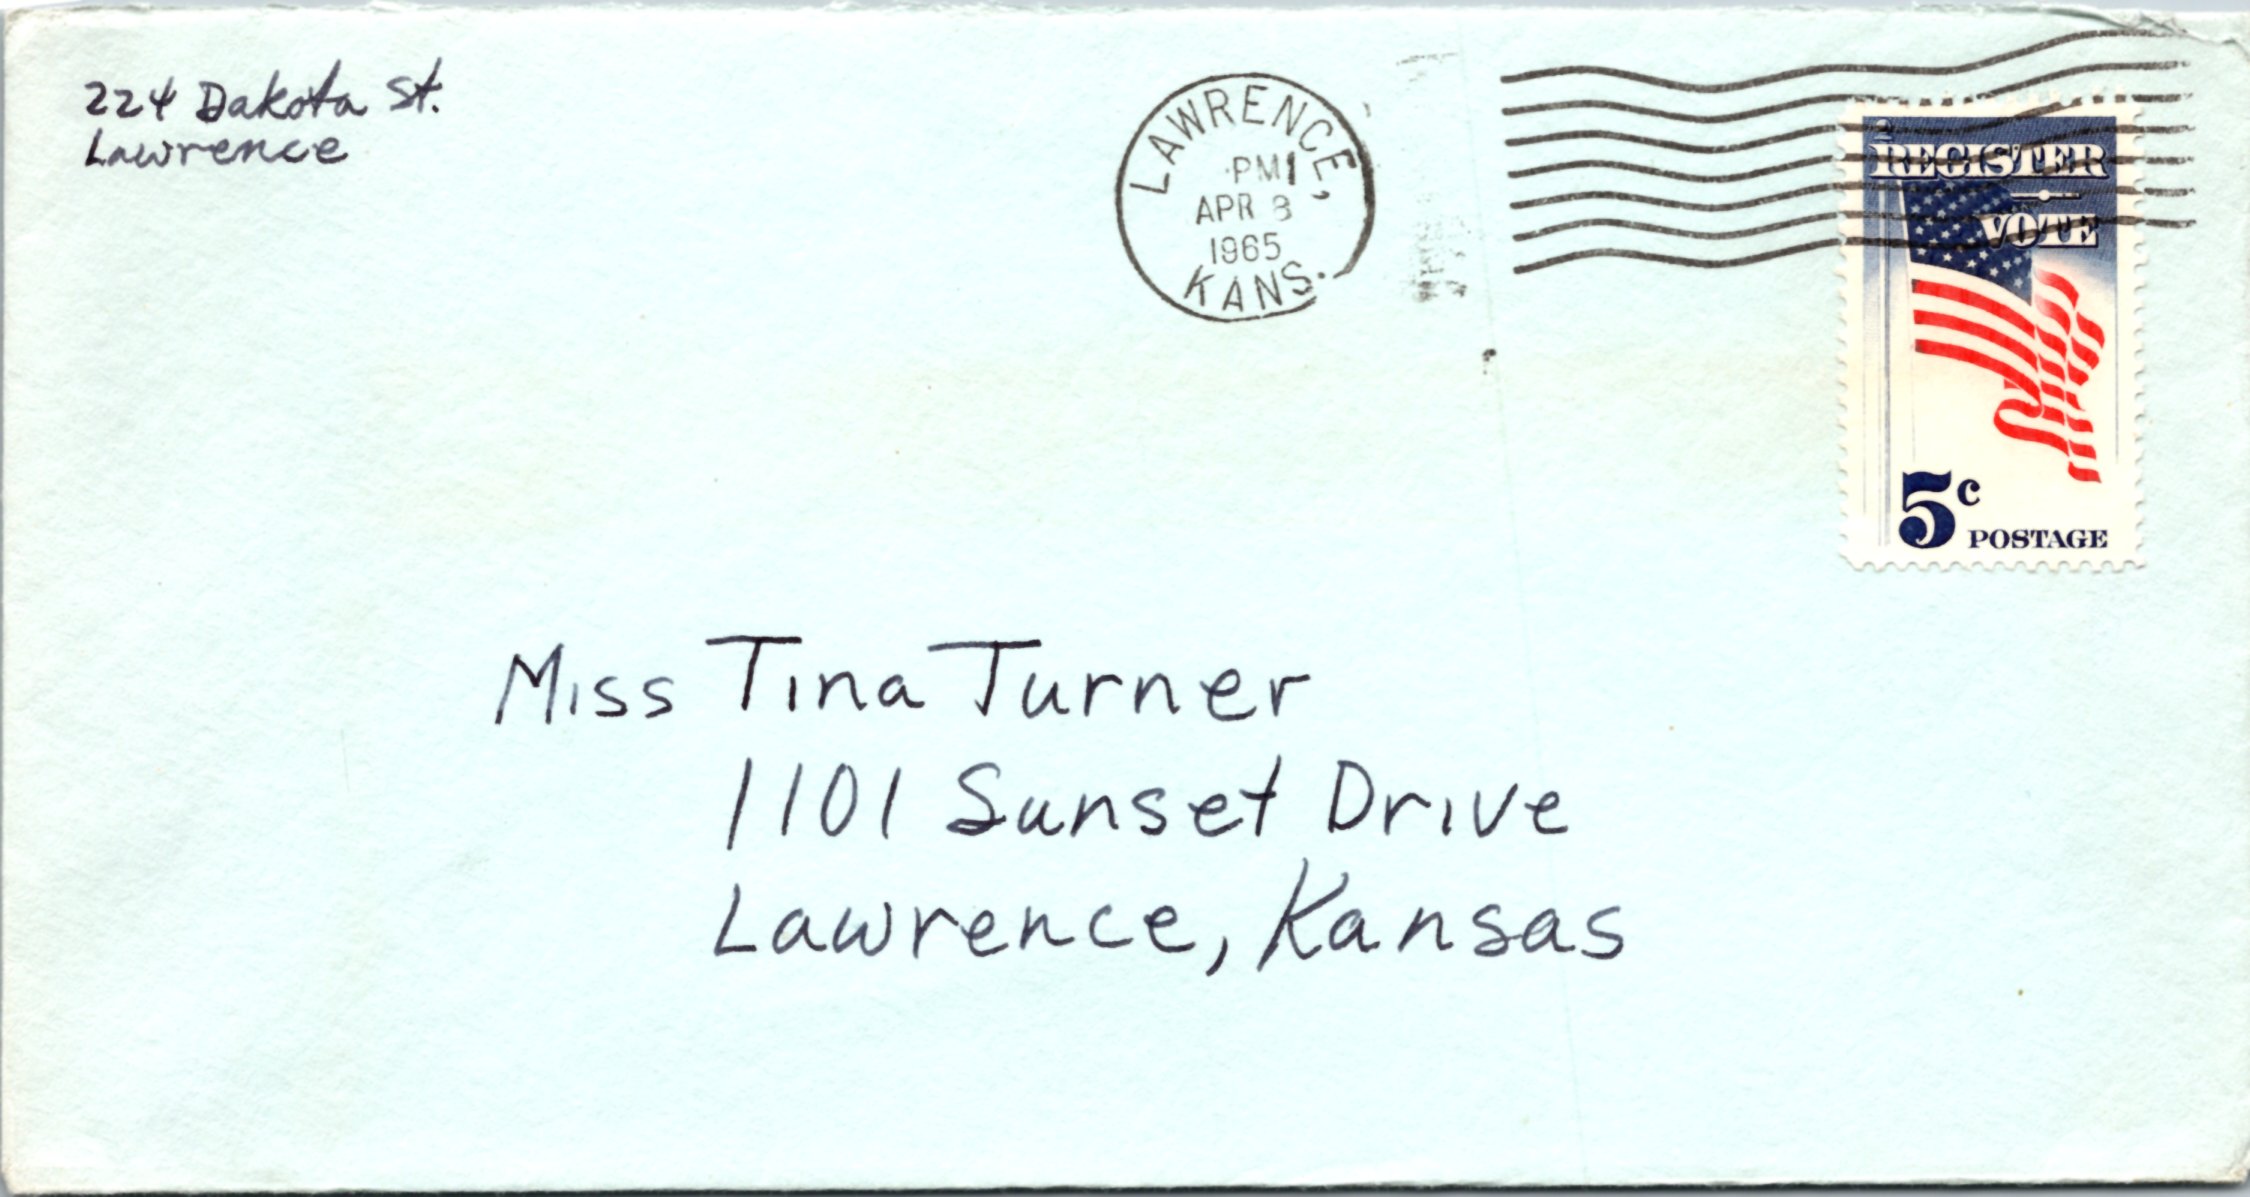 224 Dakota St.
Lawrence
LAWRENCE,
PM
APR 8
1965
KANS.
REGISTER
VOTE
5c POSTAGE
Miss Tina Turner
1101 Sunset Drive
Lawrence, Kansas